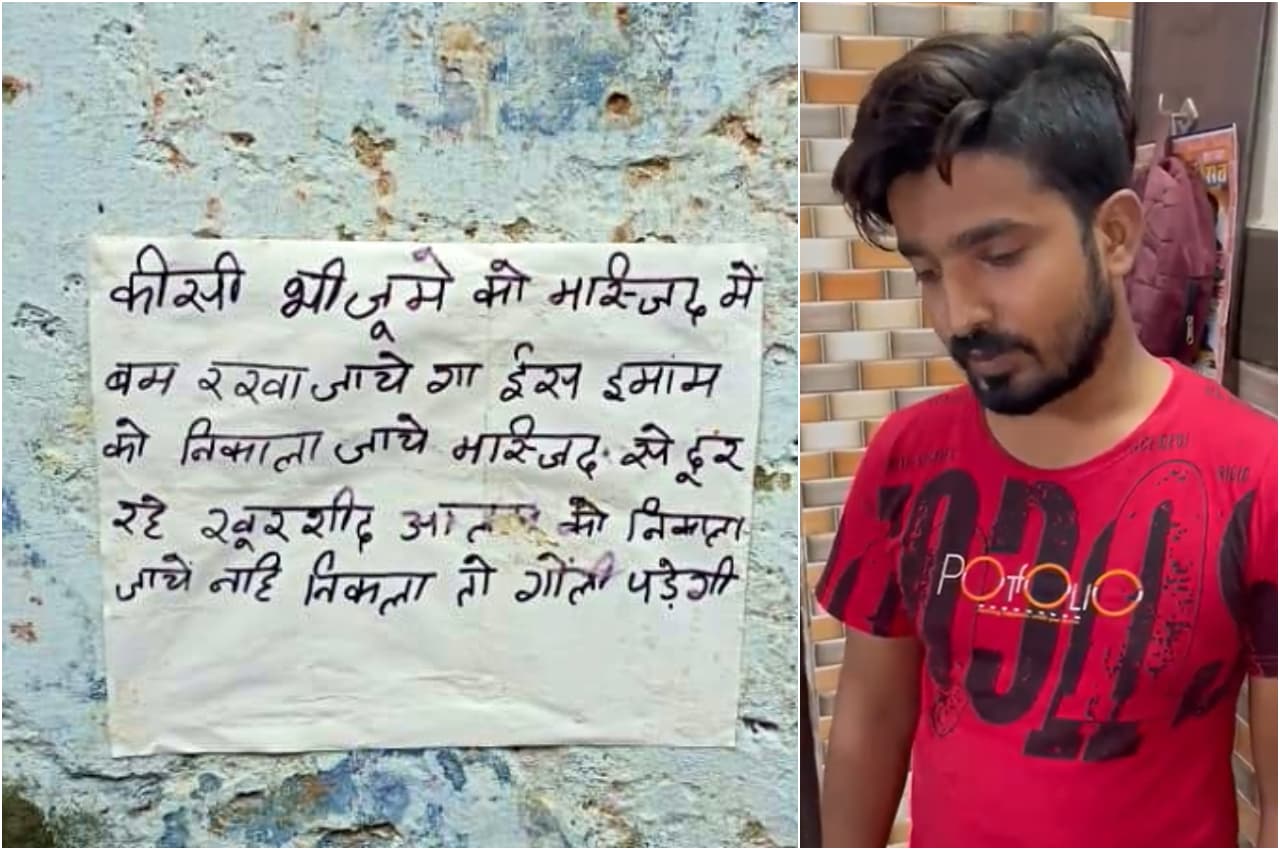 कीसी भी जूमे को मस्जिद में
बम रखा जाये गा ईस इमांम
को निकाला जाये मस्जिद से दूर
रहे खूरशीद को निकाला
जाये नहि निकला तो गोंली पड़ेगी
POtfOLiO